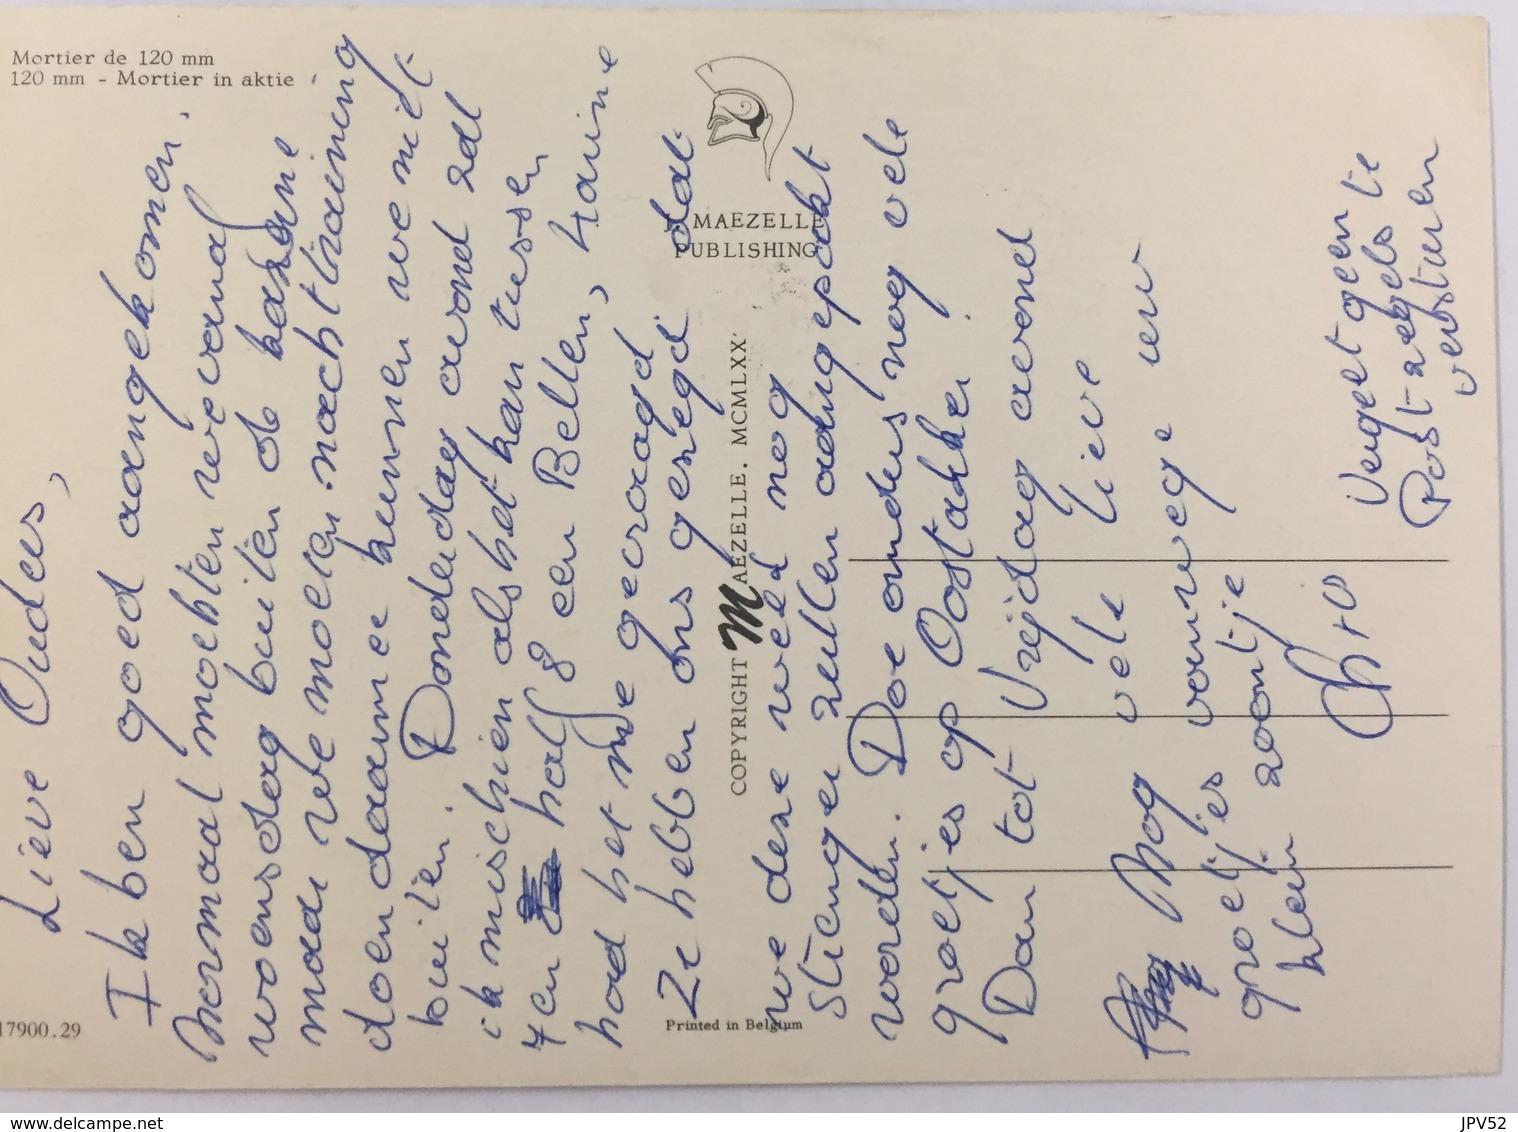 Mortier de 120 mm
120 mm - Mortier in aktie
MAEZELLE
PUBLISHING
COPYRIGHT MAEZELLE. MCMLXX
Printed in Belgium
17900.29
Lieve Ouders,
Ik ben goed aangekomen.
Normaal mochten we vanaf
woensdag buiten de kazerne
maar we moeten nachttraining
doen daarmee kunnen we niet
buiten. Donderdag avond zal
ik misschien als het kan tussen
7 en half 8 een Bellen,
had het me gevraagd
Ze hebben ons gezegd dat
we deze week nog
strenger zullen aangepakt
worden. Doe anders nog vele
groetjes op Oostakker.
Dan tot Vrijdag avond
Nog vele lieve
groetjes vanwege uw
klein zoontje
Chris
Vergeet geen
Postzegels te
versturen
www.delcampe.net
JPV52